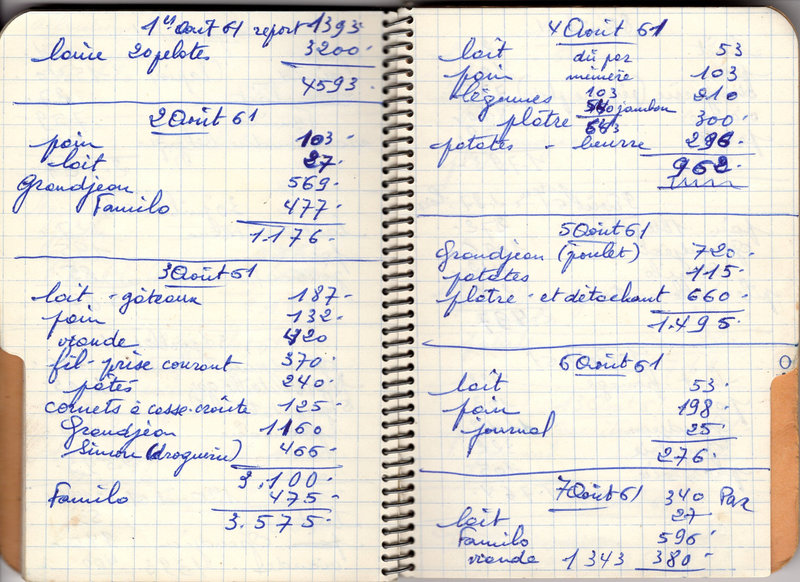 1er Août 61 report 1393.
laine 20 pelotes 3200.
4593.
2 Août 61
pain 103.
lait 27.
Grandjean 569.
Familo 477.
1.176.
3 Août 61
lait - gâteaux 187.
pain 132.
viande 420
fil - prise courant 370.
pâtés 240.
cornets à casse-croûte 125.
Grandjean 1160
Simon (droguerie) 466.
3.100.
Familo 475.
3.575.
4 Août 61
lait dû par 53
pain mémère 103
légumes 103 210
540 jambon
plâtre 643 300.
patates - beurre 296.
962.
5 Août 61
Grandjean (poulet) 720.
patates 115.
plâtre - et détachant 660.
1.495.
6 Août 61
lait 53.
pain 198.
journal 25.
276.
7 Août 61 340 Par
lait 27.
Familo 596.
viande 1343 380.